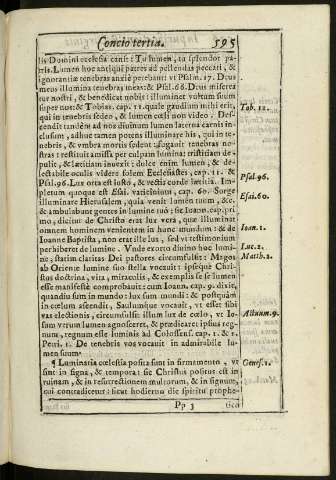 Concio tertia. 595
lis Domini ecclesia canit: Tu lumen, tu splendor pa-
tris. Lumen hoc antiqui patres ad pellendas peccati, &
ignorantiæ tenebras anxiè petebant: vt Psalm. 17. Deus
meus illumina tenebras meas: & Psal. 66. Deus miserea
tur nostri, & benedicat nobis: illuminet vultum suum
super nos: & Tobiæ. cap. 11. quale gaudium mihi erit, Tob. 12.
qui in tenebris sedeo, & lumen cæli non video. Des-
cendit tandem ad nos diuinum lumen laterna carnis in-
clusum, adhuc tamen potens illuminare his, qui in te-
nebris, & vmbra mortis sedent: effugauit tenebras no-
stras: restituit amissa per culpam lumina: tristitiam de-
pulit, & lætitiam inuexit: dulce enim lumen, & de-
lectabile oculis videre solem Ecclesiastes, cap. 11. &
Psal. 96. Lux orta est iusto, & rectis corde lætitia. Im- Psal. 96.
pletum quoque est Esai. vaticinium, cap. 60. Surge Esai. 60.
illuminare Hierusalem, quia venit lumen tuum, &c.
& ambulabunt gentes in lumine tuo: sic Ioann. cap. pri
mo, dicitur de Christo erat lux vera, quæ illuminat
omnem hominem venientem in hunc mundum: & de Ioan. 1.
Ioanne Baptista, non erat ille lux, sed vt testimonium
perhiberet de lumine. Vnde exorto diuino hoc lumi- Luc. 2.
ne, statim claritas Dei pastores circumfulsit: Magos Matth. 2.
ab Oriente lumine suo stella vocauit: ipséque Chri-
stus doctrina, vita, miraculis, & exemplis se se lumen
esse manifestè comprobauit: cum Ioann. cap. 9. dixit,
quandiu sum in mundo: lux sum mundi: & postquàm
in cœlum ascendit, Saulumque vocauit, vt esset sibi
vas electionis, circumfulsit illum lux de cœlo, vt Ie- Actuum. 9.
sum verum lumen agnosceret, & prædicaret: ipsius reg-
num, regnum esse luminis ad Colossens. cap. 1. & 1.
Petri. 1. De tenebris vos vocauit in admirabile lu-
men suum.
¶ Luminaria cœlestia posita sunt in firmamento, vt Genes. 1.
sint in signa, & tempora: sic Christus positus est in
ruinam, & in resurrectionem multorum, & in signum,
cui contradicetur: sicut hodierno die spiritu prophe-
Pp 3